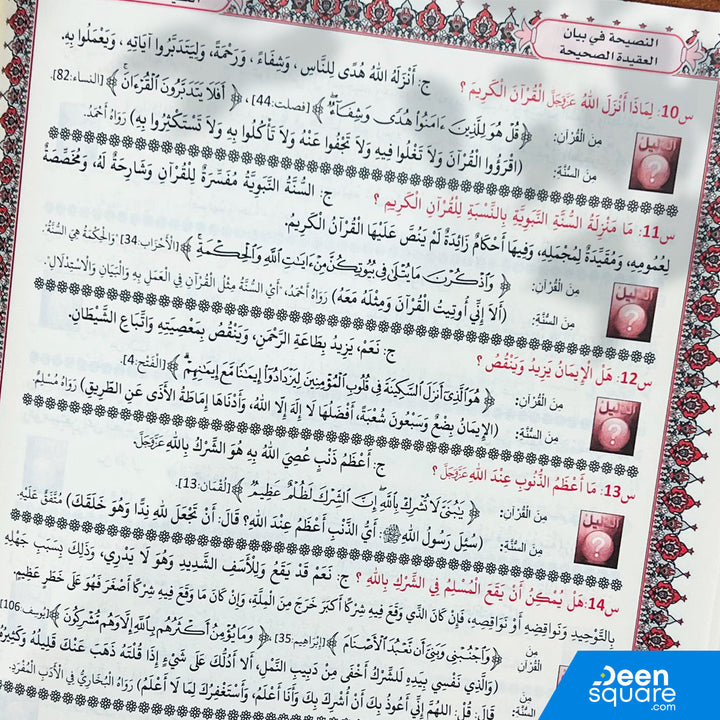 النصيحة في بيان
العقيدة الصحيحة
س10: لِمَاذَا أَنْزَلَ اللهُ عَزَّوَجَلَّ الْقُرْآنَ الْكَرِيمَ ؟ ج: أَنْزَلَهُ اللهُ هُدًى لِلنَّاسِ ، وَشِفَاءً ، وَرَحْمَةً، وَلِيَتَدَبَّرُوا آيَاتِهِ ، وَيَعْمَلُوا بِهِ.
الدليل ؟
مِنَ القُرْآنِ: ﴿قُلْ هُوَ لِلَّذِينَ ءَامَنُوا۟ هُدًى وَشِفَآءٌ﴾ [فصلت:44]، ﴿أَفَلَا يَتَدَبَّرُونَ الْقُرْءَانَ﴾ [النساء:82].
مِنَ السُّنَّةِ: (اقْرَؤُوا الْقُرْآنَ وَلَا تَغْلُوا فِيهِ وَلَا تَجْفُوا عَنْهُ وَلَا تَأْكُلُوا بِهِ وَلَا تَسْتَكْثِرُوا بِهِ) رَوَاهُ أَحْمَدُ.
س11: مَا مَنْزِلَةُ السُّنَّةِ النَّبَوِيَّةِ بِالنِّسْبَةِ لِلْقُرْآنِ الْكَرِيمِ ؟ ج: السُّنَّةُ النَّبَوِيَّةُ مُفَسِّرَةٌ لِلْقُرْآنِ وَشَارِحَةٌ لَهُ، وَمُخَصِّصَةٌ
لِعُمُومِهِ، وَمُقَيِّدَةٌ لِمُجْمَلِهِ، وَفِيهَا أَحْكَامٌ زَائِدَةٌ لَمْ يَنُصَّ عَلَيْهَا الْقُرْآنُ الْكَرِيمُ.
الدليل ؟
مِنَ القُرْآنِ: ﴿وَاذْكُرْنَ مَا يُتْلَىٰ فِى بُيُوتِكُنَّ مِنْ ءَايَـٰتِ اللَّهِ وَالْحِكْمَةِ﴾ [الأَحْزاب:34]."وَالْحِكْمَةُ هِيَ السُّنَّةُ".
مِنَ السُّنَّةِ: (أَلاَ إِنِّي أُوتِيتُ الْقُرْآنَ وَمِثْلَهُ مَعَهُ) رَوَاهُ أَحْمَدُ، "أَي السُّنَّةُ مِثْلُ الْقُرْآنِ فِي الْعَمَلِ بِهِ وَالْبَيَانِ وَالْاسْتِدْلَالِ".
س12: هَلْ الْإِيمَانُ يَزِيدُ وَيَنْقُصُ ؟ ج: نَعَمْ، يَزِيدُ بِطَاعَةِ الرَّحْمَنِ، وَيَنْقُصُ بِمَعْصِيَتِهِ وَاتِّبَاعِ الشَّيْطَانِ.
الدليل ؟
مِنَ القُرْآنِ: ﴿هُوَ الَّذِىٓ أَنْزَلَ السَّكِينَةَ فِى قُلُوبِ الْمُؤْمِنِينَ لِيَزْدَادُوٓا۟ إِيمَـٰنًا مَّعَ إِيمَـٰنِهِمْ﴾ [الْفَتْح:4].
مِنَ السُّنَّةِ: (الإِيمَانُ بِضْعٌ وَسَبْعُونَ شُعْبَةً، أَفْضَلُهَا لَا إِلَهَ إِلَّا اللهُ، وَأَدْنَاهَا إِمَاطَةُ الْأَذَى عَنِ الطَّرِيقِ) رَوَاهُ مُسْلِمٌ.
س13: مَا أَعْظَمُ الذُّنُوبِ عِنْدَ اللهِ عَزَّوَجَلَّ ؟ ج: أَعْظَمُ ذَنْبٍ عُصِيَ اللهُ بِهِ هُوَ الشِّرْكُ بِاللهِ عَزَّوَجَلَّ.
الدليل ؟
مِنَ القُرْآنِ: ﴿يَـٰبُنَىَّ لَا تُشْرِكْ بِاللَّهِ إِنَّ الشِّرْكَ لَظُلْمٌ عَظِيمٌ﴾ [لُقْمَان:13].
مِنَ السُّنَّةِ: (سُئِلَ رَسُولُ اللهِ ﷺ: أَيُّ الذَّنْبِ أَعْظَمُ عِنْدَ اللهِ؟ قَالَ: أَنْ تَجْعَلَ لِلهِ نِدًّا وَهُوَ خَلَقَكَ) مُتَّفَقٌ عَلَيْهِ.
س14: هَلْ يُمْكِنُ أَنْ يَقَعَ الْمُسْلِمُ فِي الشِّرْكِ بِاللهِ ؟ ج: نَعَمْ قَدْ يَقَعُ وَلِلْأَسَفِ الشَّدِيدِ وَهُوَ لَا يَدْرِي، وَذَلِكَ بِسَبَبِ جَهْلِهِ
بِالتَّوْحِيدِ وَنَوَاقِضِهِ أَوْ نَوَاقِصِهِ، فَإِنْ كَانَ الَّذِي وَقَعَ فِيهِ شِرْكًا أَكْبَرَ خَرَجَ مِنَ الْمِلَّةِ، وَإِنْ كَانَ مَا وَقَعَ فِيهِ شِرْكًا أَصْغَرَ فَهُوَ عَلَى خَطَرٍ عَظِيمٍ.
مِنَ القُرْآنِ: ﴿وَاجْنُبْنِى وَبَنِىَّ أَن نَّعْبُدَ الْأَصْنَامَ﴾ [إِبْرَاهِيم:35]، ﴿وَمَا يُؤْمِنُ أَكْثَرُهُم بِاللَّهِ إِلَّا وَهُم مُّشْرِكُونَ﴾ [يوسف:106]
مِنَ السُّنَّةِ: (وَالَّذِي نَفْسِي بِيَدِهِ لَلشِّرْكُ أَخْفَى مِنْ دَبِيبِ النَّمْلِ، أَلَا أَدُلُّكَ عَلَى شَيْءٍ إِذَا قُلْتَهُ ذَهَبَ عَنْكَ قَلِيلُهُ وَكَثِيرُهُ
قَالَ: قُلْ: اللهم إِنِّي أَعُوذُ بِكَ أَنْ أُشْرِكَ بِكَ وَأَنَا أَعْلَمُ، وَأَسْتَغْفِرُكَ لِمَا لَا أَعْلَمُ) رَوَاهُ الْبُخَارِيُّ فِي الْأَدَبِ الْمُفْرَدِ.
Deen
square
.com